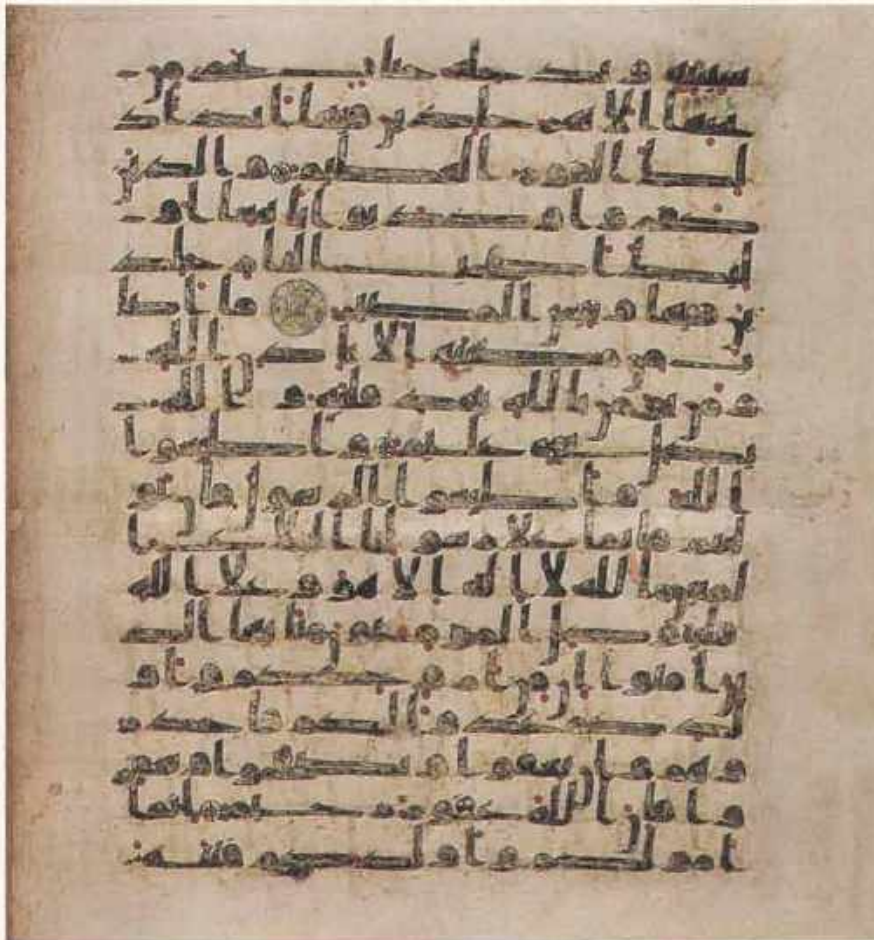 سيئته ويدخله جنت تجري من
تحتها الانهر خلدين فيها ابدا ذ
لك الفوز العظيم والذين
كفروا وكذبوا بايتنا او
لئك اصحب النار خلد
ين فيها وبئس المصير ما اصا
ب من مصيبة الا باذن الله
ومن يؤمن بالله يهد قلبه والله
بكل شي عليم واطيعوا
الله واطيعوا الرسول فان تو
ليتم فانما على رسولنا البلغ ا
لمبين الله لا اله الا هو وعلى الله
فليتوكل المؤمنون يايها الذ
ين امنوا ان من ازوجكم واو
لدكم عدوا لكم فاحذر
وهم وان تعفوا وتصفحوا وتغفر
وا فان الله غفور رحيم انما
اموالكم واولدكم فتنة